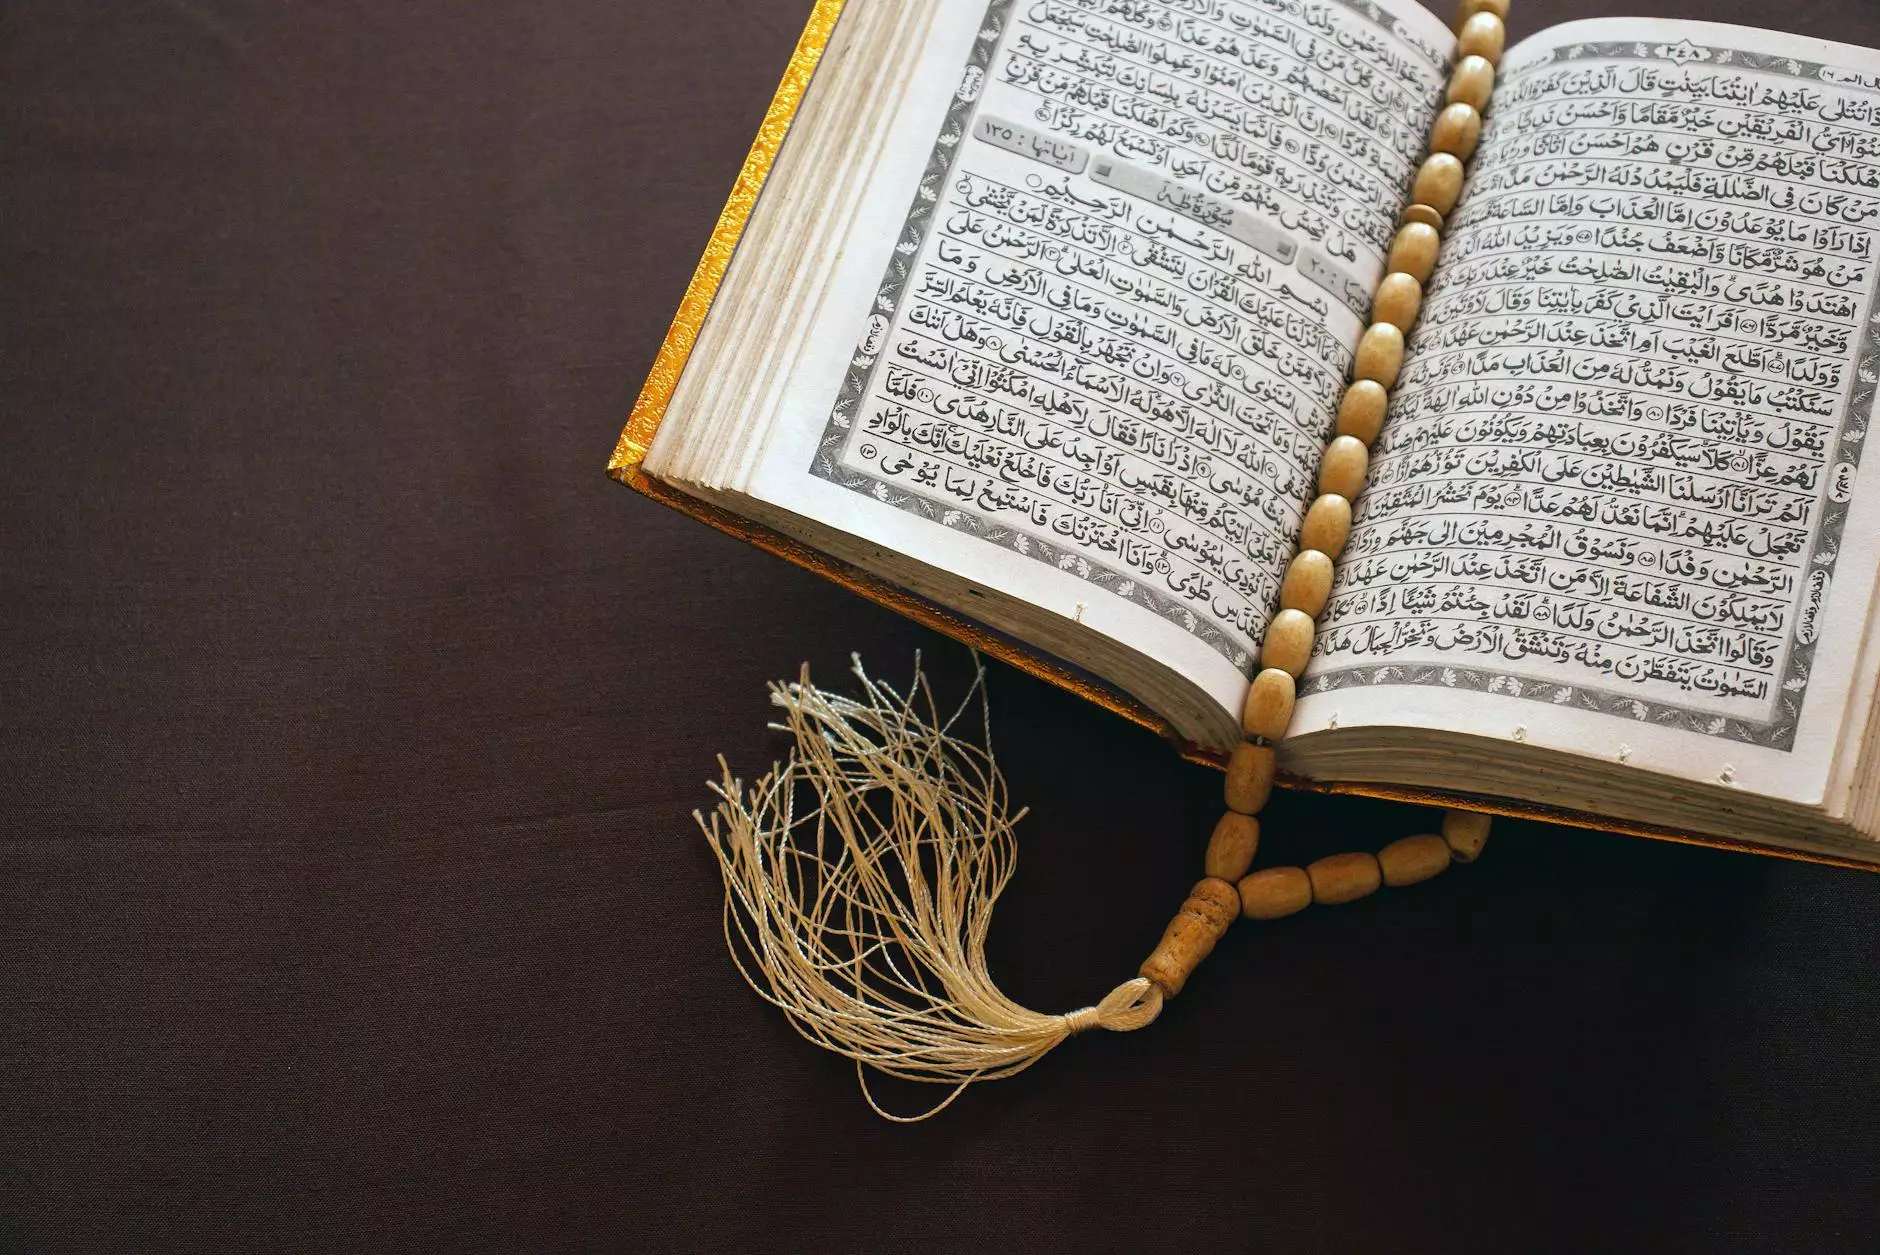 ٢٤٨
عَلَيْهِمْ اٰيٰتُنَا بَيِّنٰتٍ قَالَ الَّذِيْنَ كَفَرُوْا
اَيُّ الْفَرِيْقَيْنِ خَيْرٌ مَّقَامًا وَّاَحْسَنُ نَدِيًّا
قَبْلَهُمْ مِّنْ قَرْنٍ هُمْ اَحْسَنُ اَثَاثًا وَّرِءْيًا
مَنْ كَانَ فِى الضَّلٰلَةِ فَلْيَمْدُدْ لَهُ الرَّحْمٰنُ مَدًّا
اِذَا رَاَوْا مَا يُوْعَدُوْنَ اِمَّا الْعَذَابَ وَاِمَّا السَّاعَةَ
مَنْ هُوَ شَرٌّ مَّكَانًا وَّاَضْعَفُ جُنْدًا ۝٧٥ وَيَزِيْدُ اللّٰهُ الَّذِيْنَ
اهْتَدَوْا هُدًى ۗ وَالْبٰقِيٰتُ الصّٰلِحٰتُ خَيْرٌ عِنْدَ رَبِّكَ
وَّخَيْرٌ مَّرَدًّا ۝٧٦ اَفَرَءَيْتَ الَّذِيْ كَفَرَ بِاٰيٰتِنَا وَقَالَ لَاُوْتَيَنَّ مَا
وَّوَلَدًا ۝٧٧ اَطَّلَعَ الْغَيْبَ اَمِ اتَّخَذَ عِنْدَ الرَّحْمٰنِ عَهْدًا ۝٧٨
سَنَكْتُبُ مَا يَقُوْلُ وَنَمُدُّ لَهٗ مِنَ الْعَذَابِ مَدًّا ۝٧٩ وَّنَرِثُهٗ
يَقُوْلُ وَيَاْتِيْنَا فَرْدًا ۝٨٠ وَاتَّخَذُوْا مِنْ دُوْنِ اللّٰهِ اٰلِهَةً
لَهُمْ عِزًّا ۝٨١ كَلَّا ۗ سَيَكْفُرُوْنَ بِعِبَادَتِهِمْ وَيَكُوْنُوْنَ عَلَيْهِمْ ضِدًّا
اَلَمْ تَرَ اَنَّآ اَرْسَلْنَا الشَّيٰطِيْنَ عَلَى الْكٰفِرِيْنَ تَؤُزُّهُمْ اَزًّا ۝٨٣
تَعْجَلْ عَلَيْهِمْ ۗ اِنَّمَا نَعُدُّ لَهُمْ عَدًّا ۝٨٤ يَوْمَ نَحْشُرُ الْمُتَّقِيْنَ
الرَّحْمٰنِ وَفْدًا ۝٨٥ وَّنَسُوْقُ الْمُجْرِمِيْنَ اِلٰى جَهَنَّمَ وِرْدًا ۝٨٦
لَا يَمْلِكُوْنَ الشَّفَاعَةَ اِلَّا مَنِ اتَّخَذَ عِنْدَ الرَّحْمٰنِ عَهْدًا
وَقَالُوا اتَّخَذَ الرَّحْمٰنُ وَلَدًا ۝٨٨ لَقَدْ جِئْتُمْ شَيْـًٔا اِدًّا ۝٨٩ تَكَادُ
السَّمٰوٰتُ يَتَفَطَّرْنَ مِنْهُ وَتَنْشَقُّ الْاَرْضُ وَتَخِرُّ الْجِبَالُ هَدًّا
دَعَوْا لِلرَّحْمٰنِ وَلَدًا
اِنْ كُلُّ مَنْ فِى السَّمٰوٰتِ وَالْاَرْضِ
لَقَدْ اَحْصٰىهُمْ وَعَدَّهُمْ عَدًّا ۝٩٤ وَكُلُّهُمْ
فَرْدًا ۝٩٥ اِنَّ الَّذِيْنَ اٰمَنُوْا وَعَمِلُوا الصّٰلِحٰتِ سَيَجْعَلُ
الرَّحْمٰنُ وُدًّا ۝٩٦ فَاِنَّمَا يَسَّرْنٰهُ بِلِسَانِكَ لِتُبَشِّرَ بِهِ
وَتُنْذِرَ بِهٖ قَوْمًا لُّدًّا ۝٩٧ وَكَمْ اَهْلَكْنَا قَبْلَهُمْ مِّنْ قَرْنٍ
هَلْ تُحِسُّ مِنْهُمْ مِّنْ اَحَدٍ اَوْ تَسْمَعُ لَهُمْ رِكْزًا ۝٩٨
سُوْرَةُ طٰهٰ اٰيَاتُهَا : ١٣٥
بِسْمِ اللّٰهِ الرَّحْمٰنِ الرَّحِيْمِ
مَآ اَنْزَلْنَا عَلَيْكَ الْقُرْاٰنَ لِتَشْقٰى ۝٢ اِلَّا تَذْكِرَةً لِّمَنْ يَّخْشٰى ۝٣
مِّمَّنْ خَلَقَ الْاَرْضَ وَالسَّمٰوٰتِ الْعُلٰى ۝٤ اَلرَّحْمٰنُ عَلَى
اسْتَوٰى ۝٥ لَهٗ مَا فِى السَّمٰوٰتِ وَمَا فِى الْاَرْضِ وَمَا
وَمَا تَحْتَ الثَّرٰى ۝٦ وَاِنْ تَجْهَرْ بِالْقَوْلِ فَاِنَّهٗ يَعْلَمُ السِّرَّ
اَللّٰهُ لَآ اِلٰهَ اِلَّا هُوَ ۗ لَهُ الْاَسْمَآءُ الْحُسْنٰى ۝٨ وَهَلْ اَتٰىكَ
مُوْسٰى ۝٩ اِذْ رَاٰ نَارًا فَقَالَ لِاَهْلِهِ امْكُثُوْٓا اِنِّيْٓ اٰنَسْتُ
لَّعَلِّيْٓ اٰتِيْكُمْ مِّنْهَا بِقَبَسٍ اَوْ اَجِدُ عَلَى النَّارِ هُدًى ۝١٠ فَلَمَّآ
نُوْدِيَ يٰمُوْسٰى ۝١١ اِنِّيْٓ اَنَا رَبُّكَ فَاخْلَعْ نَعْلَيْكَ ۚ اِنَّكَ بِالْوَادِ
طُوًى ۝١٢ وَاَنَا اخْتَرْتُكَ فَاسْتَمِعْ لِمَا يُوْحٰى ۝١٣